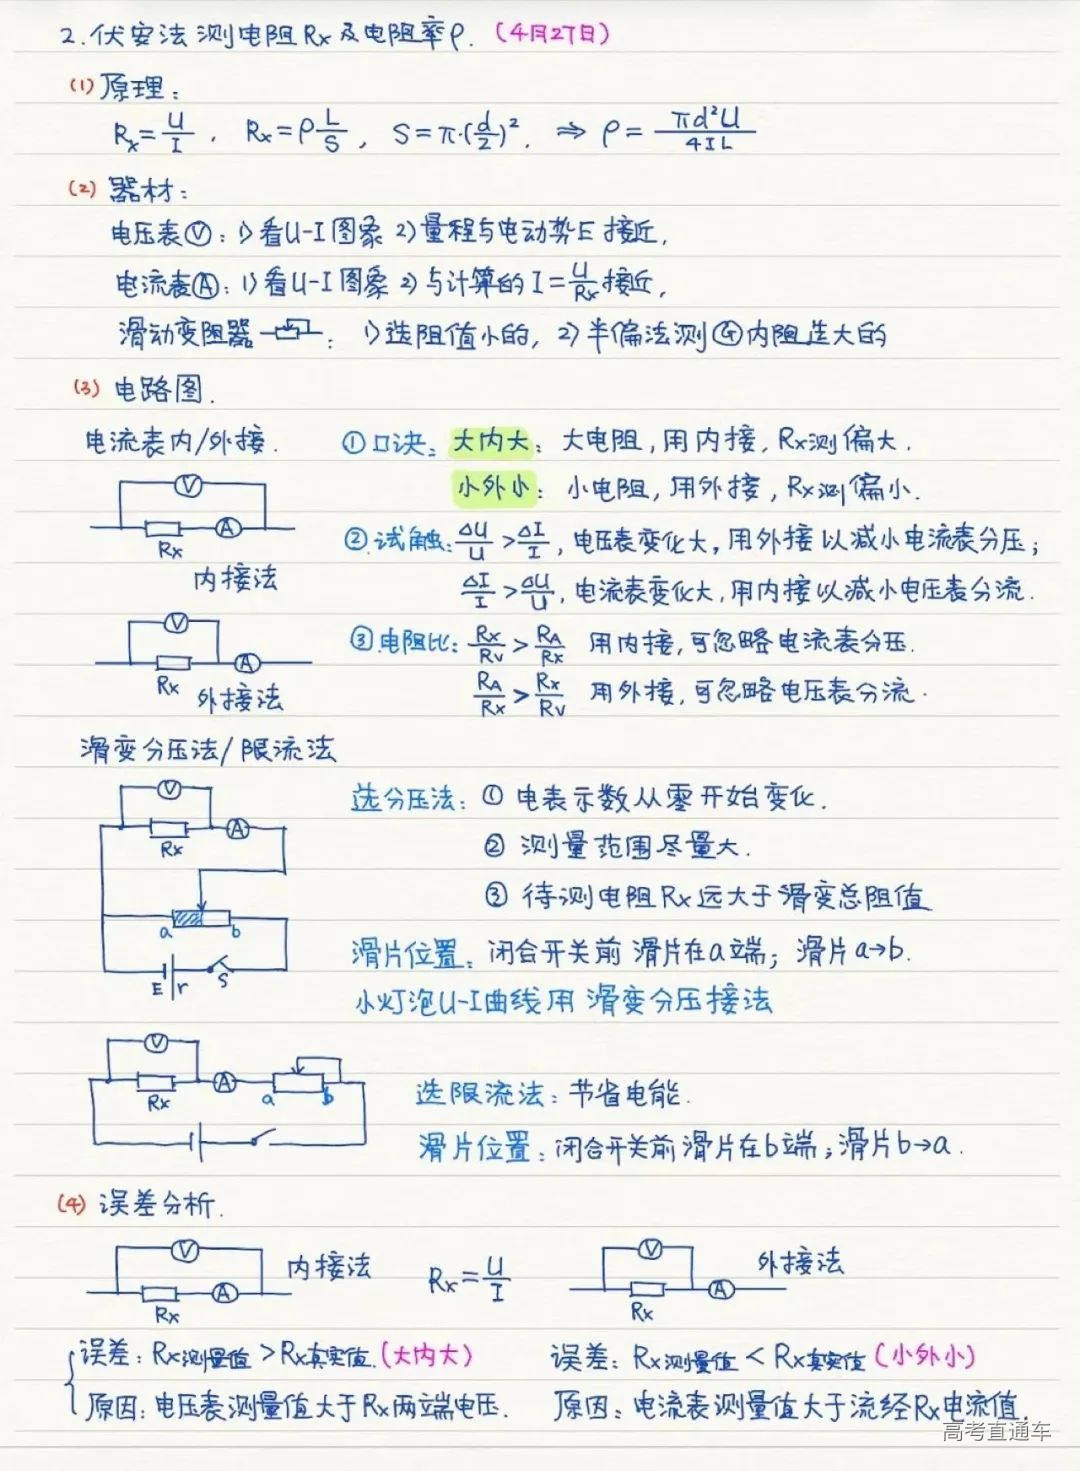 2. 伏安法测电阻Rx及电阻率ρ. (4月27日)
(1) 原理:
Rx = U/I , Rx = ρ L/S , S = π·(d/2)². ⇒ ρ = πd²U/4IL
(2) 器材:
电压表Ⓥ: 1) 看U-I图象 2) 量程与电动势E接近,
电流表Ⓐ: 1) 看U-I图象 2) 与计算的 I = U/Rx 接近,
滑动变阻器 : 1) 选阻值小的, 2) 半偏法测Ⓖ内阻选大的
(3) 电路图.
电流表内/外接.
① 口诀: 大内大: 大电阻, 用内接, Rx测偏大.
小外小: 小电阻, 用外接, Rx测偏小.
V
Rx A
内接法
② 试触: ΔU/U > ΔI/I , 电压表变化大, 用外接以减小电流表分压;
ΔI/I > ΔU/U , 电流表变化大, 用内接以减小电压表分流.
V
Rx A
外接法
③ 电阻比: Rx/Rv > RA/Rx 用内接, 可忽略电流表分压.
RA/Rx > Rx/Rv 用外接, 可忽略电压表分流.
滑变分压法/限流法
V
Rx A
a b
E r S
选分压法: ① 电表示数从零开始变化.
② 测量范围尽量大.
③ 待测电阻Rx远大于滑变总阻值
滑片位置: 闭合开关前滑片在a端; 滑片a→b.
小灯泡U-I曲线用滑变分压接法
V
Rx A a b
选限流法: 节省电能.
滑片位置: 闭合开关前滑片在b端; 滑片b→a.
(4) 误差分析.
V
Rx A
内接法
Rx = U/I
V
Rx A
外接法
误差: Rx测量值 > Rx真实值. (大内大)
原因: 电压表测量值大于Rx两端电压.
误差: Rx测量值 < Rx真实值 (小外小)
原因: 电流表测量值大于流经Rx电流值.
高考直通车